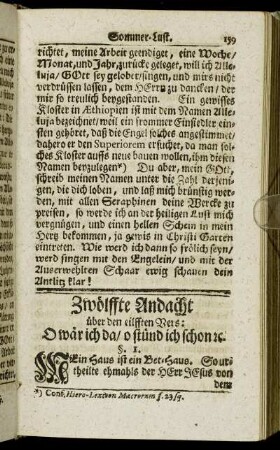 Sommer-Lust. 159
richtet, meine Arbeit geendiget, eine Woche/
Monat, und Jahr, zurücke geleget, will ich Alle-
luja, GOtt sey gelobet/ singen, und mirs nicht
verdrüssen lassen, dem HErrn zu dancken/ der
mir so treulich beygestanden. Ein gewisses
Kloster in Æthiopien ist mit dem Namen Alle-
luja bezeichnet/ weil ein frommer Einsiedler ein-
sten gehöret, daß die Engel solches angestimmet/
dahero er den Superiorem ersuchet, da man sol-
ches Kloster auffs neue bauen wollen, ihm diesen
Namen beyzulegen*) Du aber, mein GOtt/
schreib meinen Namen unter die Zahl derjeni-
gen, die dich loben, und laß mich brünstig wer-
den, mit allen Seraphinen deine Wercke zu
preisen, so werde ich an der heiligen Lust mich
vergnügen, und einen hellen Schein in mein
Hertz bekommen, ja gewis in Christi Garten
eintreten. Wie werd ich dann so frölich seyn/
werd singen mit den Engelein/ und mit der
Auserwehlten Schaar ewig schauen dein
Antlitz klar!
Zwölffte Andacht
über den eilfften Vers:
O wär ich da/ o stünd ich schon ꝛc.
§. 1.
MEin Haus ist ein Bet-Haus. So ur-
theilte ehmahls der HErr JEsus von
dem
*) Conf. Hiero-Lexicon Macrorum f. 23/q.